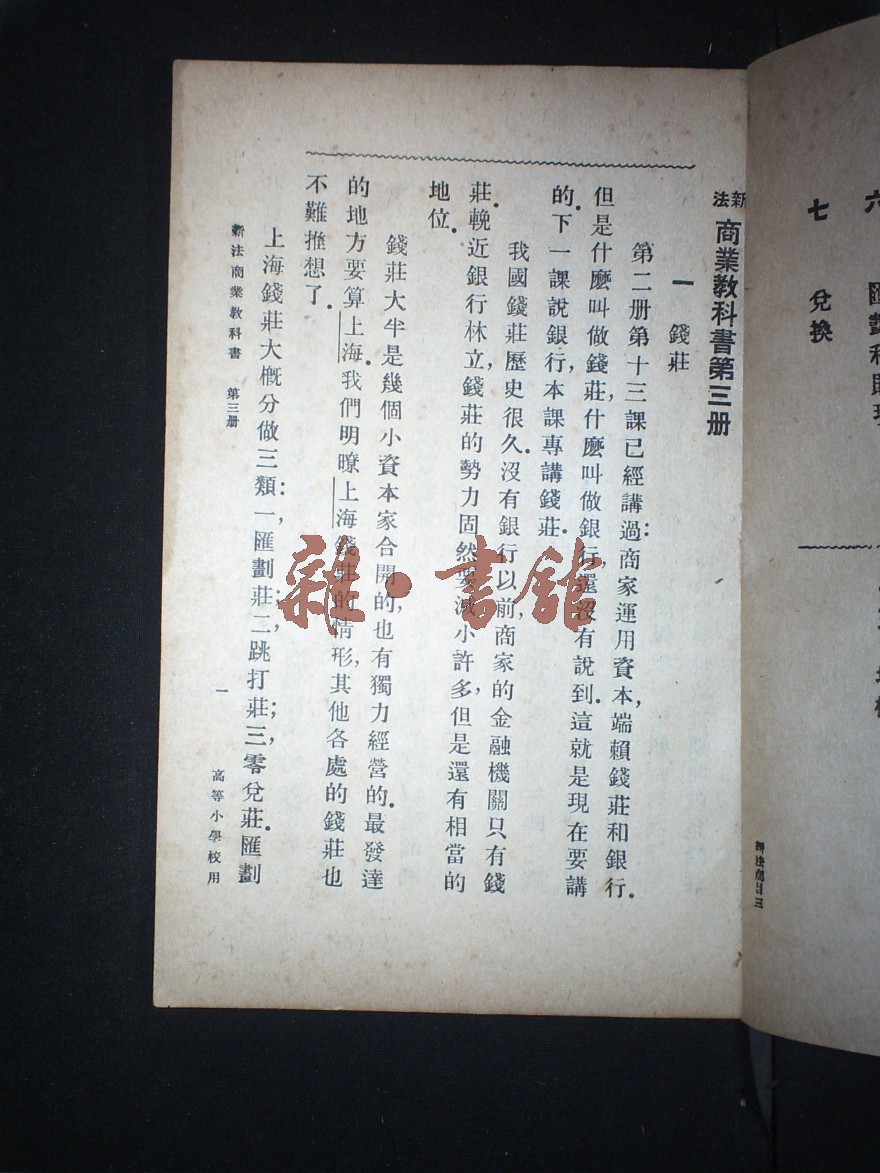 六　匯劃和貼現
七　兌換
新法商業教科書第三册
一　錢莊
第二册第十三課已經講過：商家運用資本，端賴錢莊和銀行．
但是什麽叫做錢莊，什麽叫做銀行，還沒有說到．這就是現在要講
的．下一課說銀行，本課專講錢莊．
我國錢莊歷史很久．沒有銀行以前，商家的金融機關只有錢
莊．輓近銀行林立，錢莊的勢力固然要減小許多，但是還有相當的
地位．
錢莊大半是幾個小資本家合開的，也有獨力經營的．最發達
的地方要算上海．我們明瞭上海錢莊的情形，其他各處的錢莊也
不難推想了．
上海錢莊大概分做三類：一，匯劃莊；二，跳打莊；三，零兌莊．匯劃
新法商業教科書　第三册
一
高等小學校用
雜·書館